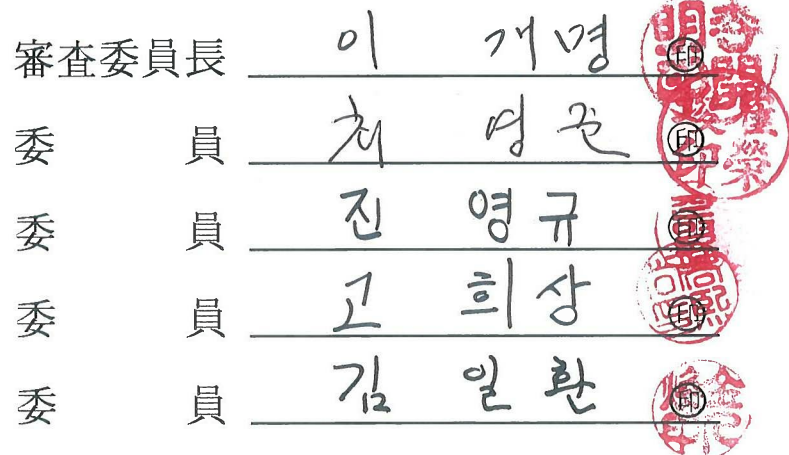 審査委員長 이 개명 印
委員 최 영근 印
委員 진 영규 印
委員 고 희상 印
委員 김 일환 印